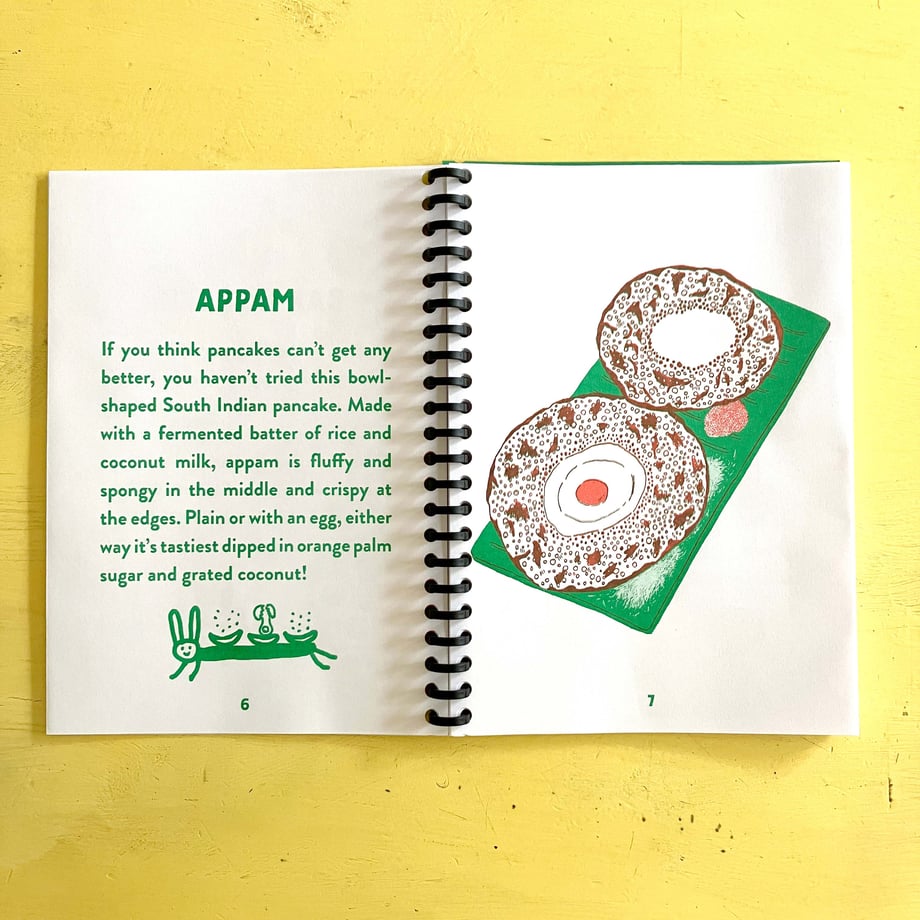 APPAM
If you think pancakes can't get any
better, you haven't tried this bowl-
shaped South Indian pancake. Made
with a fermented batter of rice and
coconut milk, appam is fluffy and
spongy in the middle and crispy at
the edges. Plain or with an egg, either
way it's tastiest dipped in orange palm
sugar and grated coconut!
6
7